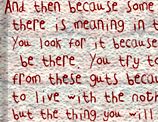 And then because some
there is meaning in t
You look for it because
be there. You try to
from these guts becau
to live with the not
but the thing you will